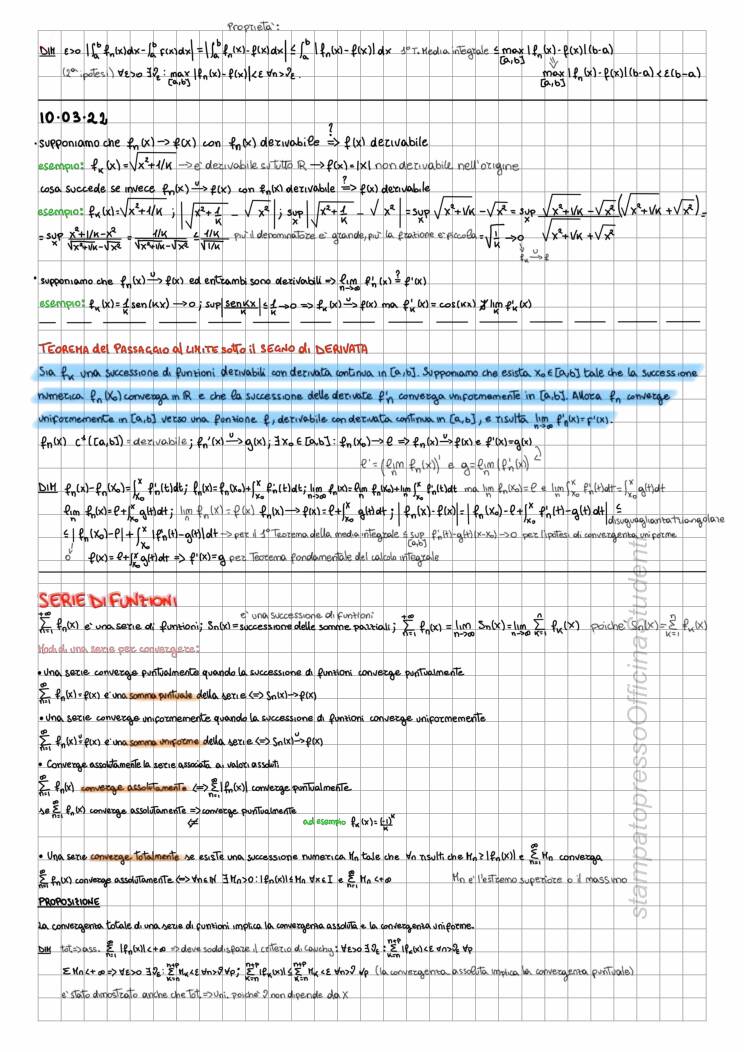 Proprietà:
DIM ε>0 |∫ₐᵇ fₙ(x)dx-∫ₐᵇ f(x)dx|=|∫ₐᵇ fₙ(x)-f(x)dx| ≤ ∫ₐᵇ |fₙ(x)-f(x)|dx 1° T. Media integrale ≤ max[a,b] |fₙ(x)-f(x)|(b-a)
(2ª ipotesi) ∀ε>0 ∃ν_ε: max[a,b] |fₙ(x)-f(x)|<ε ∀n>ν_ε. ⇓ max[a,b] |fₙ(x)-f(x)|(b-a)<ε(b-a)
10-03-22
• supponiamo che fₙ(x)→f(x) con fₙ(x) derivabile ?⇒ f(x) derivabile
esempio: f_k(x)=√(x²+1/k) → e' derivabile su tutto ℝ → f(x)=|x| non derivabile nell'origine
cosa succede se invece fₙ(x) →ᵘ f(x) con fₙ(x) derivabile ?⇒ f(x) derivabile
esempio: f_k(x)=√(x²+1/k) ; |√(x²+1/k) - √x²| ; sup_x |√(x²+1/k) - √x²| = sup_x √(x²+1/k)-√x² = sup_x (√(x²+1/k)-√x²)(√(x²+1/k)+√x²) / (√(x²+1/k)+√x²) =
= sup_x (x²+1/k-x²)/(√(x²+1/k)-√x²) = (1/k)/(√(x²+1/k)-√x²) ≤ (1/k)/√(1/k) più il denominatore e' grande, più la frazione e' piccola = √(1/k) → 0
f_k →ᵘ f
• supponiamo che fₙ(x) →ᵘ f(x) ed entrambi sono derivabili ⇒ lim n→∞ f'ₙ(x) ?= f'(x)
esempio: f_k(x)=1/k sen(kx)→0 ; sup|senkx/k| ≤ 1/k →0 ⇒ f_k(x) →ᵘ f(x) ma f'_k(x)=cos(kx) ∄ lim f'_k(x)
TEOREMA del PASSAGGIO al LIMITE sotto il SEGNO di DERIVATA
Sia f_k una successione di funzioni derivabili con derivata continua in [a,b]. Supponiamo che esista x₀∈[a,b] tale che la successione
numerica fₙ(x₀) converga in ℝ e che la successione delle derivate f'ₙ converga uniformemente in [a,b]. Allora fₙ converge
uniformemente in [a,b] verso una funzione f, derivabile con derivata continua in [a,b], e risulta lim n→∞ f'ₙ(x)=f'(x).
fₙ(x) C¹([a,b])=derivabile ; fₙ'(x) →ᵘ g(x) ; ∃x₀∈[a,b]: fₙ(x₀)→ℓ ⇒ fₙ(x) →ᵘ f(x) e f'(x)=g(x)
ℓ'=(lim fₙ(x))' e g=lim(f'ₙ(x))
DIM fₙ(x)-fₙ(x₀)=∫ₓ₀ˣ f'ₙ(t)dt; fₙ(x)=fₙ(x₀)+∫ₓ₀ˣ fₙ(t)dt; lim n→∞ fₙ(x)=lim fₙ(x₀)+lim ∫ₓ₀ˣ f'ₙ(t)dt ma lim fₙ(x₀)=ℓ e lim ∫ₓ₀ˣ f'ₙ(t)dt=∫ₓ₀ˣ g(t)dt
lim fₙ(x)=ℓ+∫ₓ₀ˣ g(t)dt ; lim fₙ(x)=f(x) fₙ(x)→f(x)=ℓ+∫ₓ₀ˣ g(t)dt ; |fₙ(x)-f(x)|=|fₙ(x₀)-ℓ+∫ₓ₀ˣ f'ₙ(t)-g(t)dt| ≤
disuguaglianza triangolare
≤|fₙ(x₀)-ℓ|+∫ₓ₀ˣ |f'ₙ(t)-g(t)|dt → per il 1° Teorema della media integrale ≤ sup[a,b] f'ₙ(t)-g(t)(x-x₀)→0 per l'ipotesi di convergenza uniforme
0 f(x)=ℓ+∫ₓ₀ˣ g(t)dt ⇒ f'(x)=g per Teorema fondamentale del calcolo integrale
SERIE DI FUNZIONI
e' una successione di funzioni
∑ₙ₌₁^{+∞} fₙ(x) e' una serie di funzioni; Sₙ(x)=successione delle somme parziali; ∑ₙ₌₁^{+∞} fₙ(x)=lim n→∞ Sₙ(x)=lim n→∞ ∑ₖ₌₁ⁿ f_k(x) poiche' Sₙ(x)=∑ₖ₌₁ⁿ f_k(x)
Modi di una serie per convergere:
• Una serie converge puntualmente quando la successione di funzioni converge puntualmente
∑ₙ₌₁^∞ fₙ(x)=f(x) e' una somma puntuale della serie ⇔ Sₙ(x)→f(x)
• Una serie converge uniformemente quando la successione di funzioni converge uniformemente
∑ₙ₌₁^∞ fₙ(x) =ᵘ f(x) e' una somma uniforme della serie ⇔ Sₙ(x) →ᵘ f(x)
• Converge assolutamente la serie associata ai valori assoluti
∑ₙ₌₁^∞ fₙ(x) converge assolutamente ⇔ ∑ₙ₌₁^∞ |fₙ(x)| converge puntualmente
se ∑ₙ₌₁^∞ fₙ(x) converge assolutamente ⇒ converge puntualmente
⇍ ad esempio f_k(x)=(-1)ᵏ/k
• Una serie converge totalmente se esiste una successione numerica Mₙ tale che ∀n risulti che Mₙ≥|fₙ(x)| e ∑ₙ₌₁^∞ Mₙ converga
∑ₙ₌₁^∞ fₙ(x) converge assolutamente ⇔ ∀n∈ℕ ∃Mₙ>0: |fₙ(x)|≤Mₙ ∀x∈I e ∑ₙ₌₁^∞ Mₙ<+∞ Mₙ e' l'estremo superiore o il massimo
PROPOSIZIONE
La convergenza totale di una serie di funzioni implica la convergenza assoluta e la convergenza uniforme.
DIM tot⇒ass. ∑ₙ₌₁^∞ |fₙ(x)|<+∞ ⇒ deve soddisfare il criterio di cauchy: ∀ε>0 ∃ν_ε: ∑ₖ₌ₙ^{n+p} |f_k(x)|<ε ∀n>ν_ε ∀p
∑Mₙ<+∞ ⇒ ∀ε>0 ∃ν_ε: ∑ₖ₌ₙ^{n+p} M_k<ε ∀n>ν ∀p; ∑ₖ₌ₙ^{n+p} |f_k(x)|≤∑ₖ₌ₙ^{n+p} M_k<ε ∀n>ν ∀p (la convergenza assoluta implica la convergenza puntuale)
e' stato dimostrato anche che Tot.⇒Uni. poiche' ν non dipende da x
stampatopressoOfficinaStudenti